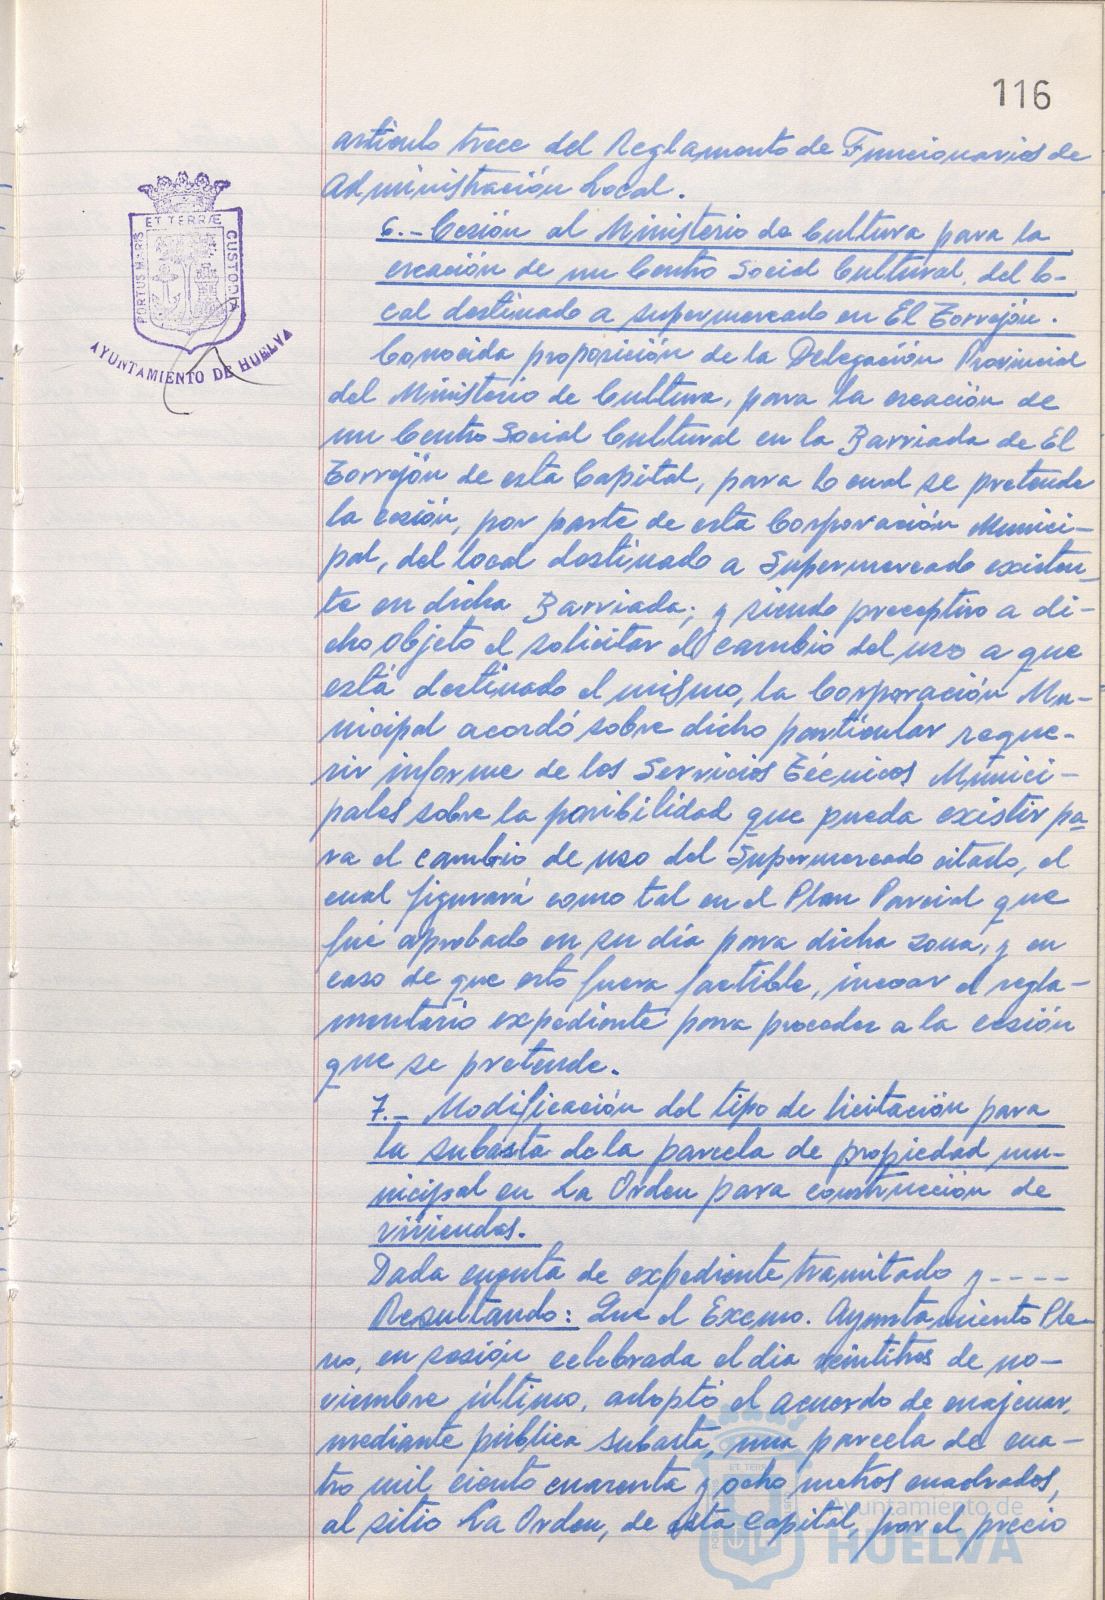 116
artículo trece del Reglamento de Funcionarios de
Administración Local.
6.- Cesión al Ministerio de Cultura para la
creación de un Centro Social Cultural, del lo-
cal destinado a supermercado en El Torrejón.
Conocida proposición de la Delegación Provincial
del Ministerio de Cultura, para la creación de
un Centro Social Cultural en la Barriada de El
Torrejón de esta Capital, para lo cual se pretende
la cesión, por parte de esta Corporación Munici-
pal, del local destinado a Supermercado existen-
te en dicha Barriada; y siendo preceptivo a di-
cho objeto el solicitar el cambio del uso a que
está destinado el mismo, la Corporación Mu-
nicipal acordó sobre dicho particular reque-
rir informe de los Servicios Técnicos Munici-
pales sobre la posibilidad que pueda existir pa-
ra el cambio de uso del Supermercado citado, el
cual figurará como tal en el Plan Parcial que
fué aprobado en su día para dicha zona, y en
caso de que esto fuera factible, incoar el regla-
mentario expediente para proceder a la cesión
que se pretende.
7.- Modificación del tipo de licitación para
la subasta de la parcela de propiedad mu-
nicipal en La Orden para construcción de
viviendas.
Dada cuenta de expediente tramitado y ----
Resultando: Que el Excmo. Ayuntamiento Ple-
no, en sesión celebrada el dia veintitres de no-
viembre último, adoptó el acuerdo de enajenar,
mediante pública subasta, una parcela de cua-
tro mil ciento cuarenta y ocho metros cuadrados,
al sitio La Orden, de esta Capital, por el precio
ET TERRÆ
PORTUS MARIS
CUSTODIA
AYUNTAMIENTO DE HUELVA
Ayuntamiento de
HUELVA